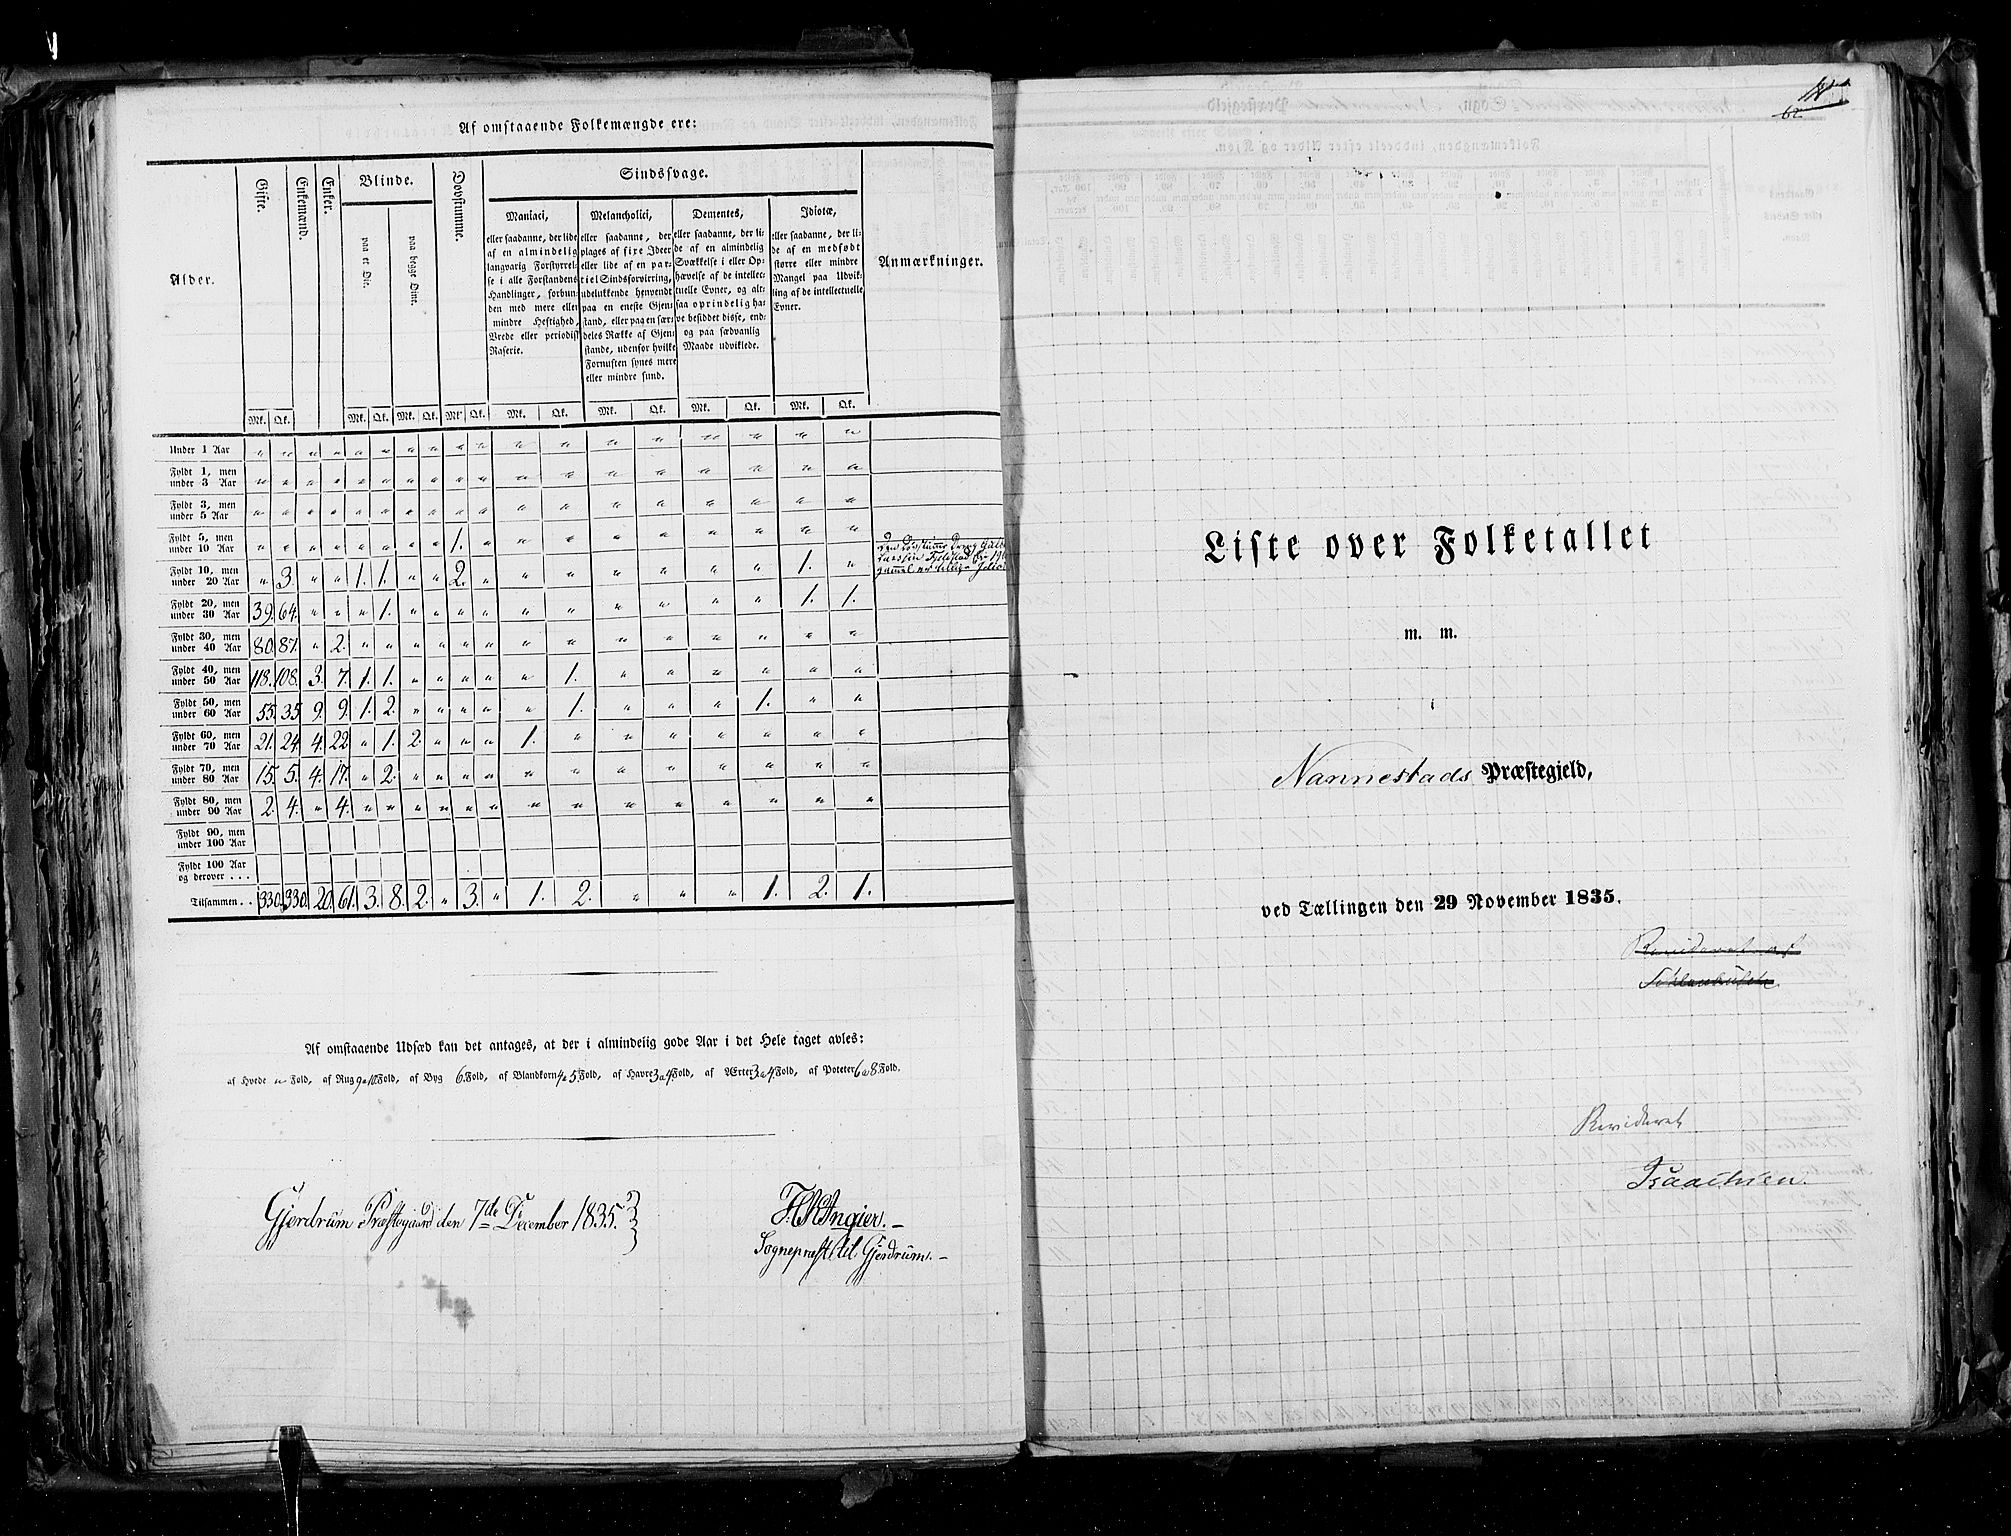 Af omstaaende Folkemængde ere:
Alder. Gifte. Enkemænd. Enker. Blinde. Døvstumme. Sindssvage. Anmærkninger.
paa et Øie. paa begge Øine.
Maniaci,
eller saadanne, der lide
af en almindelig
langvarig Forstyrrel-
se i alle Forstandens
Handlinger, forbun-
den med mere eller
mindre Heftighed,
Vrede eller periodisk
Raserie.
Melancholici,
eller saadanne, der
plages af fixe Ideer
eller lide af en par-
tiel Sindsforvirring,
udelukkende henvendt
paa en eneste Gjen-
stand, eller paa en sær-
deles Række af Gjen-
stande, udenfor hvilke
Fornuften synes mere
eller mindre sund.
Dementes,
eller saadanne, der li-
de af en almindelig
Svækkelse i eller Op-
hævelse af de intellec-
tuelle Evner, og alt-
saa oprindelig ha-
ve besiddet disse, end-
og paa sædvanlig
Maade udviklede.
Idiotæ,
eller saadanne, der li-
de af en medfødt
større eller mindre
Mangel paa Udvik-
ling af de intellectuelle
Evner.
Mk. Qk. Mk. Qk. Mk. Qk. Mk. Qk. Mk. Qk. Mk. Qk. Mk. Qk. Mk. Qk.
Under 1 Aar " " " " " " " " " " " " " " " " " "
Fyldt 1, men under 3 Aar " " " " " " " " " " " " " " " " " "
Fyldt 3, men under 5 Aar " " " " " " " " " " " " " " " " " "
Fyldt 5, men under 10 Aar " " " " " " " " 1. " " " " " " " " "
Fyldt 10, men under 20 Aar " 3. " " 1. 1. " " 2. " " " " " " " 1. "
Fyldt 20, men under 30 Aar 39. 64. " " " 1. " " " " " " " " " " 1. 1.
Fyldt 30, men under 40 Aar 80. 87. " 2. " " " " " " " " " " " " " "
Fyldt 40, men under 50 Aar 118. 108. 3. 7. 1. 1. " " " " " 1. " " " " " "
Fyldt 50, men under 60 Aar 55. 35 9. 9. 1. 2. " " " " " 1. " " " 1. " "
Fyldt 60, men under 70 Aar 21. 24. 4. 22 " 1. 2. " " " 1. " " " " " " "
Fyldt 70, men under 80 Aar 15. 5. 4. 17. " 2. " " " " " " " " " " " "
Fyldt 80, men under 90 Aar 2. 4. " 4. " " " " " " " " " " " " " "
Fyldt 90, men under 100 Aar
Fyldt 100 Aar og derover . . .
Tilsammen . . 330. 330. 20. 61. 3. 8. 2. " 3. " 1. 2. " " " 1. 2. 1.
Af omstaaende Udsæd kan det antages, at der i almindelig gode Aar i det Hele taget avles:
af Hvede " Fold, af Rug 9 a 10 Fold, af Byg 6. Fold, af Blandkorn 4 a 5 Fold, af Havre 3 a 4 Fold, af Ærter 3 a 4 Fold, af Poteter 6 a 8 Fold.
Gjerdrum Præstegaard den 7de December 1835.
Angier.
Sognepræst til Gjerdrum.
62.
Liste over Folketallet
m. m.
i
Nannestads Præstegjeld,
ved Tællingen den 29 November 1835.
Revideret af
Revideret
Isaachsen.